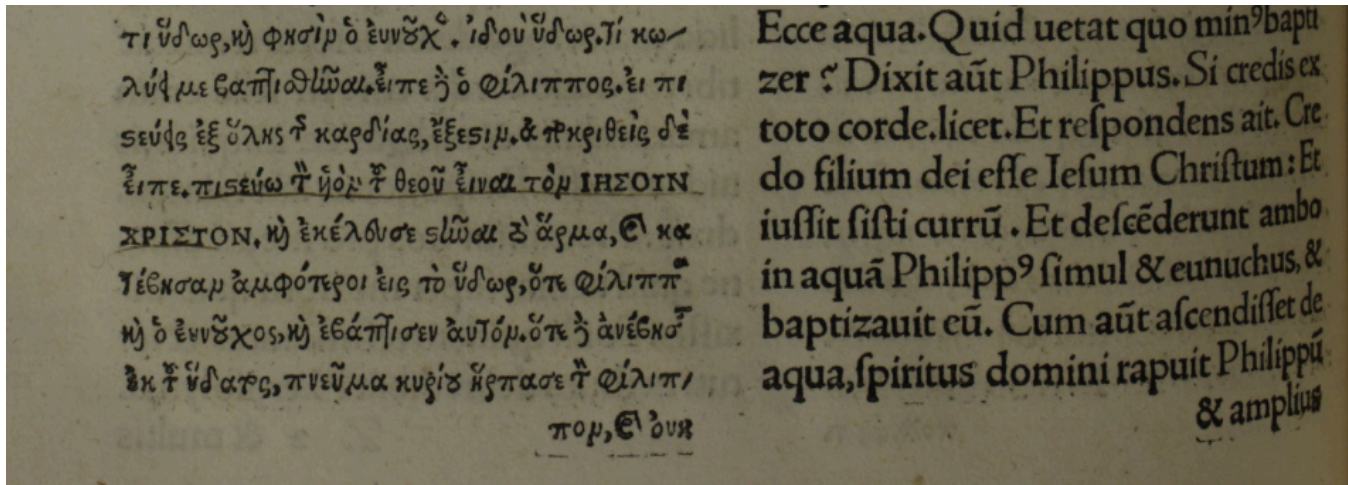 τι ὕδωρ, καὶ φησὶν ὁ ἐυνοῦχος. ἰδοὺ ὕδωρ. τί κω-
λύει με βαπτισθῆναι. εἶπε δὲ ὁ φίλιππος. ἐι πι
στεύεις ἐξ ὅλης τῆς καρδίας, ἔξεστιν. ἀποκριθεὶς δὲ
εἶπε. πιστεύω τὸν ὑιὸν τοῦ θεοῦ εἶναι τὸν ΙΗΣΟΙΝ
ΧΡΙΣΤΟΝ. καὶ ἐκέλευσε στῆναι τὸ ἅρμα, καὶ κα
τέβησαν ἀμφότεροι ἐις τὸ ὕδωρ, ὅτε φίλιππος
καὶ ὁ ἐυνοῦχος, καὶ ἐβάπτισεν ἀυτόν. ὅτε δὲ ἀνέβησαν
ἐκ τοῦ ὕδατος, πνεῦμα κυρίου ἥρπασε τὸν φίλιπ-
πον, καὶ ὀυκ
Ecce aqua. Quid uetat quo minꝰ bapti
zer ? Dixit aūt Philippus. Si credis ex
toto corde. licet. Et reſpondens ait. Cre
do filium dei eſſe Ieſum Chriſtum: Et
iuſſit ſiſti currū . Et deſcēderunt ambo
in aquā Philippꝰ ſimul & eunuchus, &
baptizauit eū. Cum aūt aſcendiſſet de
aqua, ſpiritus domini rapuit Philippū
& amplius